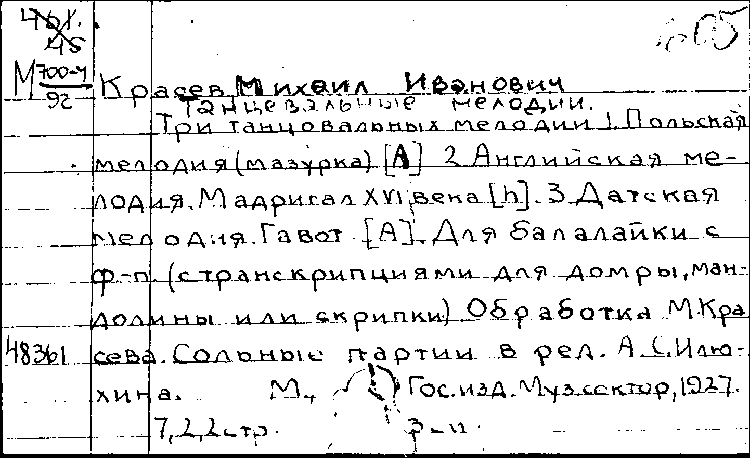 М 700-4
92
Красев, Михаил Иванович
Танцевальные мелодии.
Три танцовальных мелодии 1. Польская
мелодия (мазурка) [A] 2 Английская ме-
лодия. Мадригал XVI века [h]. 3. Датская
мелодия. Гавот [A]. Для балалайки с
ф-п. (странскрипциями для домры, ман-
долины или скрипки) Обработка М. Кра
48361 сева. Сольные партии в ред. А. С. Илю-
хина. М., Гос. изд. Муз. сектор, 1927.
7, 2, 2 стр.